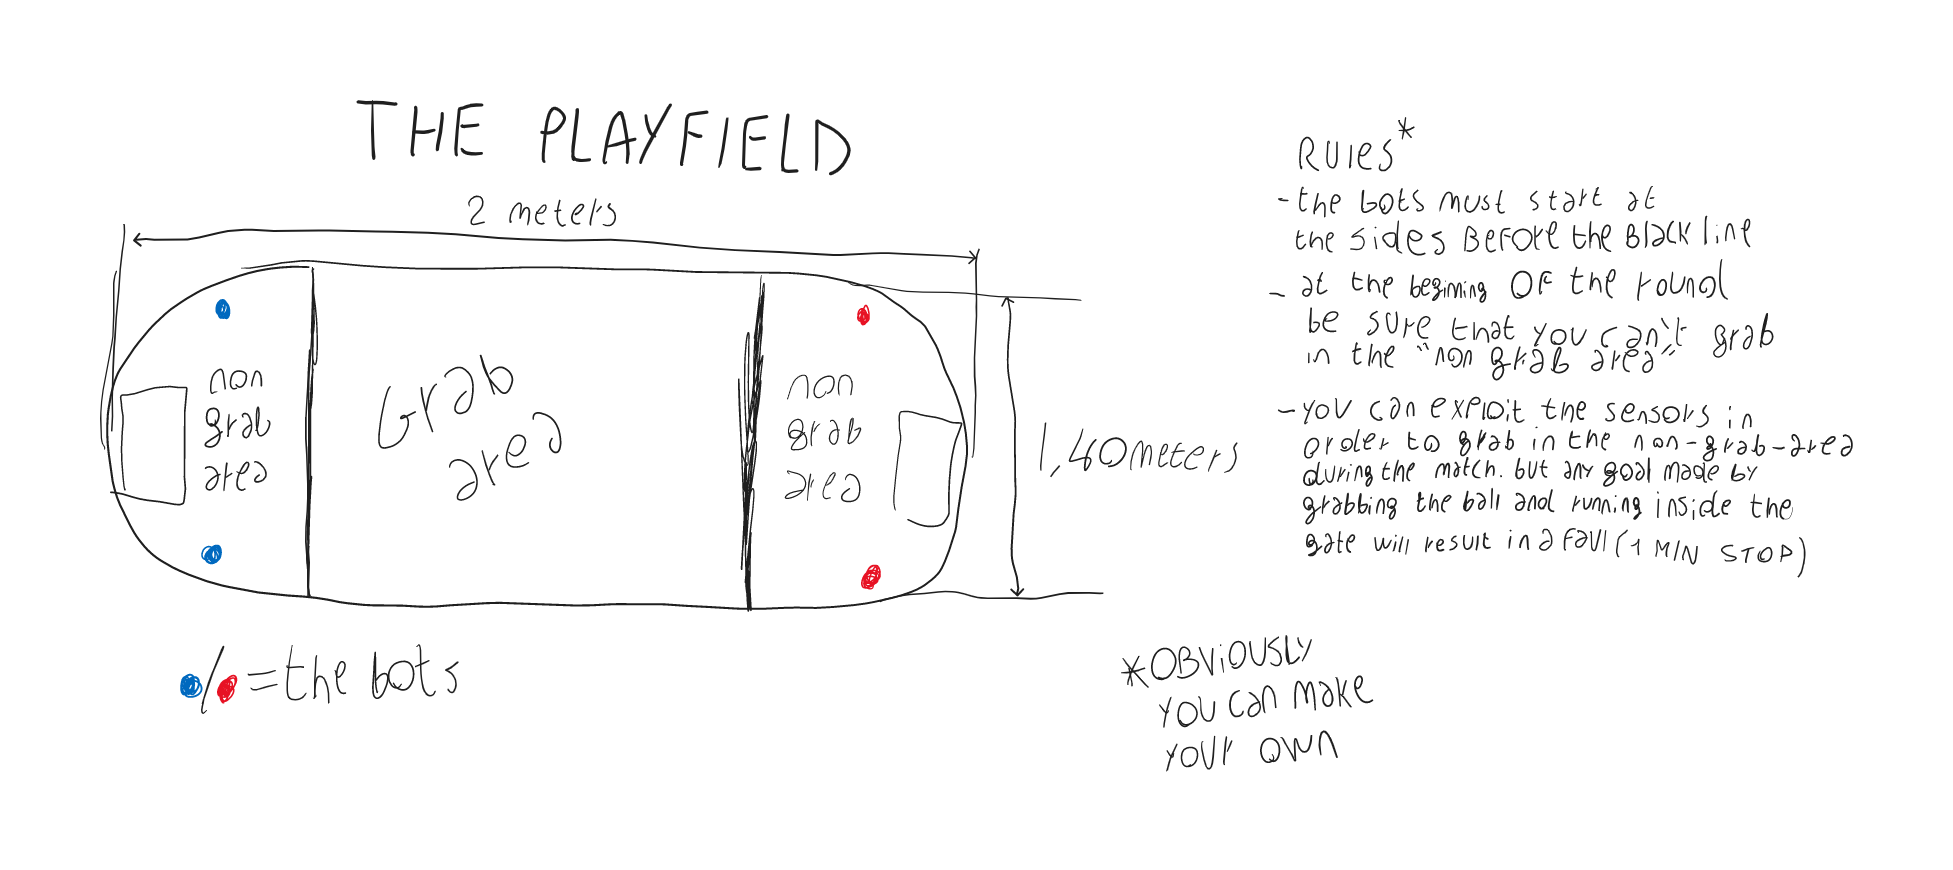 THE PLAYFIELD
2 meters
non
grab
area
Grab
area
non
grab
area
1,40meters
= the bots
RUles*
- the bots must start at
the sides BEFORE the BlACK line
- at the begining OF the round
be sure that you can't grab
in the "non grab area"
- you can exploit the sensors in
order to grab in the non-grab-area
during the match. but any goal made by
grabbing the ball and running inside the
gate will result in a FaUl (1 MIN STOP)
*OBViOUSLY
YOU can make
your own